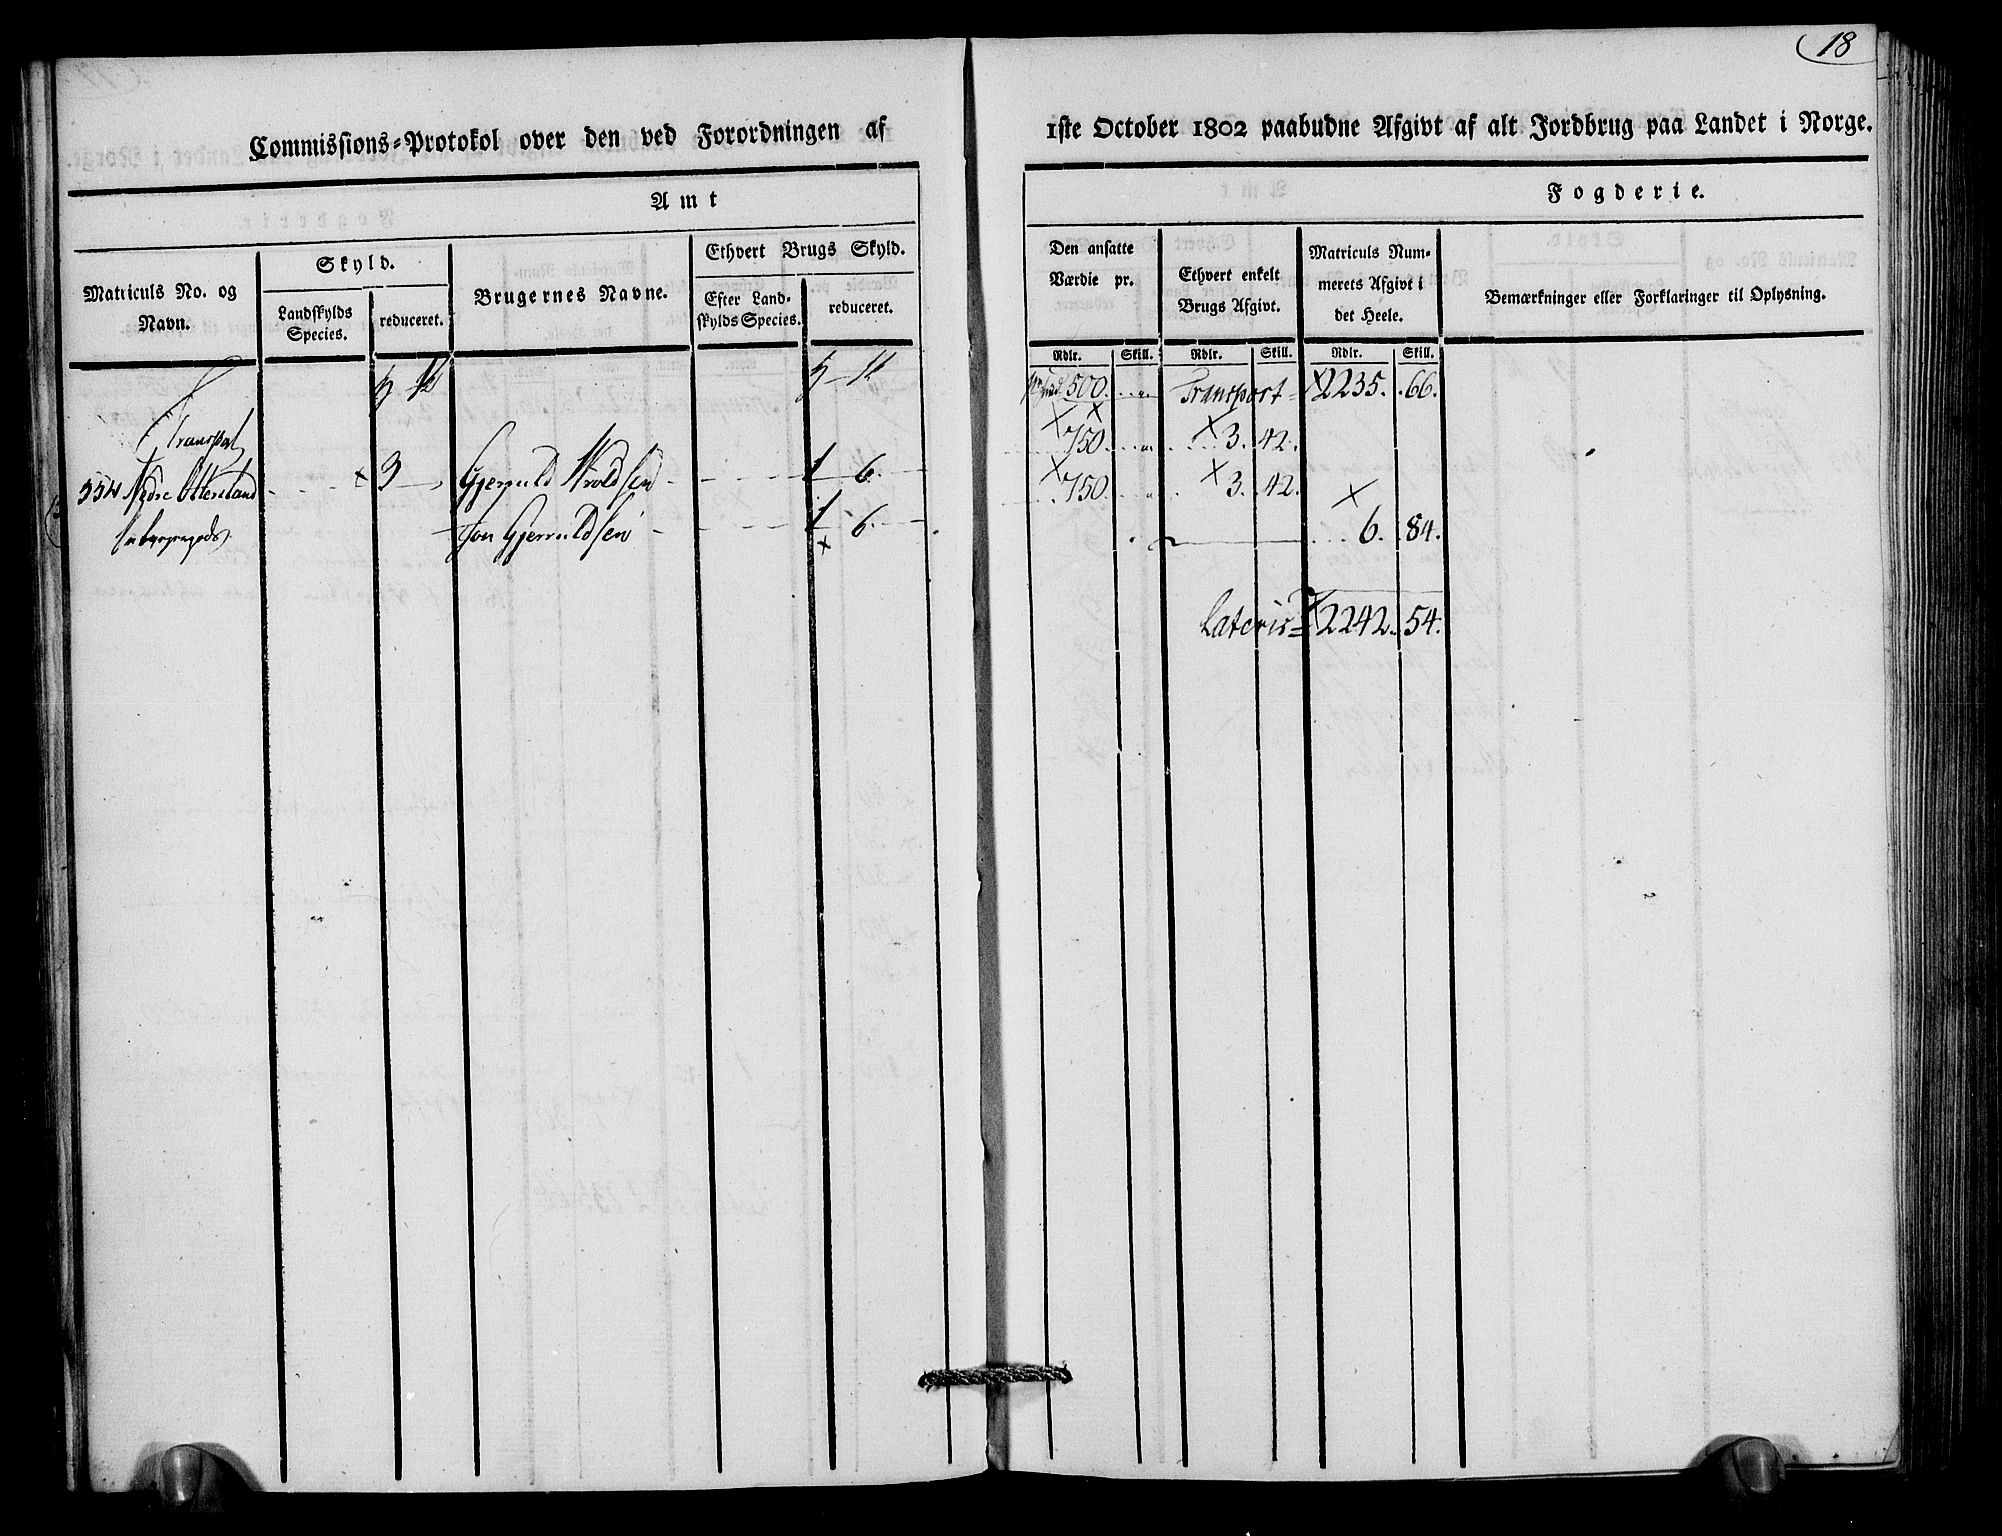 18
Commissions-Protokol over den ved Forordningen af 1ste October 1802 paabudne Afgivt af alt Jordbrug paa Landet i Norge.
Amt Fogderie.
Matriculs No. og Navn.
Skyld.
Landskylds Species.
reduceret.
Brugernes Navne.
Ethvert Brugs Skyld.
Efter Landskylds Species.
reduceret.
Den ansatte Værdie pr.
Ethvert enkelt Brugs Afgivt.
Matriculs Nummerets Afgivt i det Heele.
Bemærkninger eller Forklaringer til Oplysning.
Rdlr. Skill. Rdlr. Skill. Rdlr. Skill.
500. Transport 2235. 66.
Transport
750. 3. 42.
Nedre 3 Gjeruld 1 6. 750. 3. 42.
Jon Gjeruldsen 1 6. 6. 84.
Lateris 2242. 54.